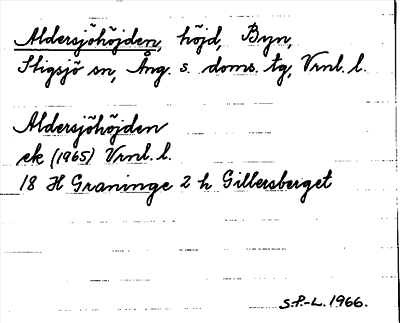 Aldersjöhöjden, höjd, Byn,
Stigsjö sn, Ång. s. doms. tg, Vrnl. l.
Aldersjöhöjden
ek (1965) Vrnl. l.
18 H Graninge 2 h Gillersberget
S.P.-L. 1966.